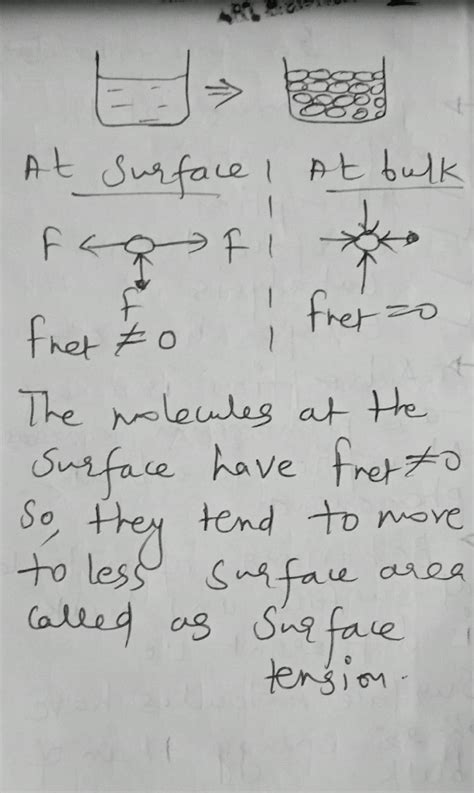 At Surface | At bulk
F F
F
Fnet ≠ 0 Fnet = 0
The molecules at the
surface have Fnet ≠ 0
So, they tend to move
to less surface area
called as Surface
tension.